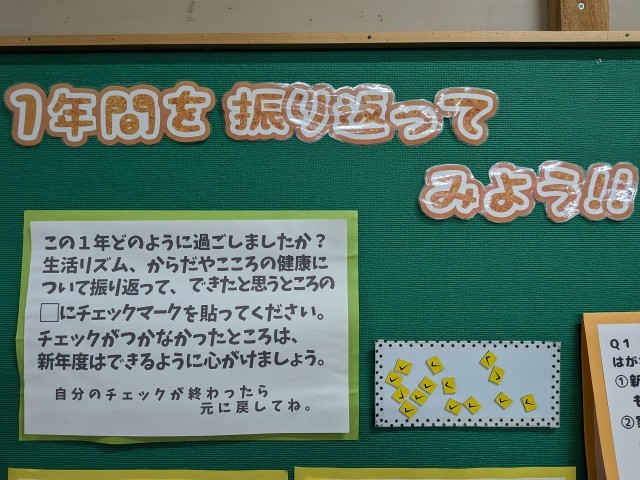 1年間を振り返って
みよう!!
この1年どのように過ごしましたか?
生活リズム、からだやこころの健康に
ついて振り返って、できたと思うところの
□にチェックマークを貼ってください。
チェックがつかなかったところは、
新年度はできるように心がけましょう。
自分のチェックが終わったら
元に戻してね。
Q1
はが
①新
も
②